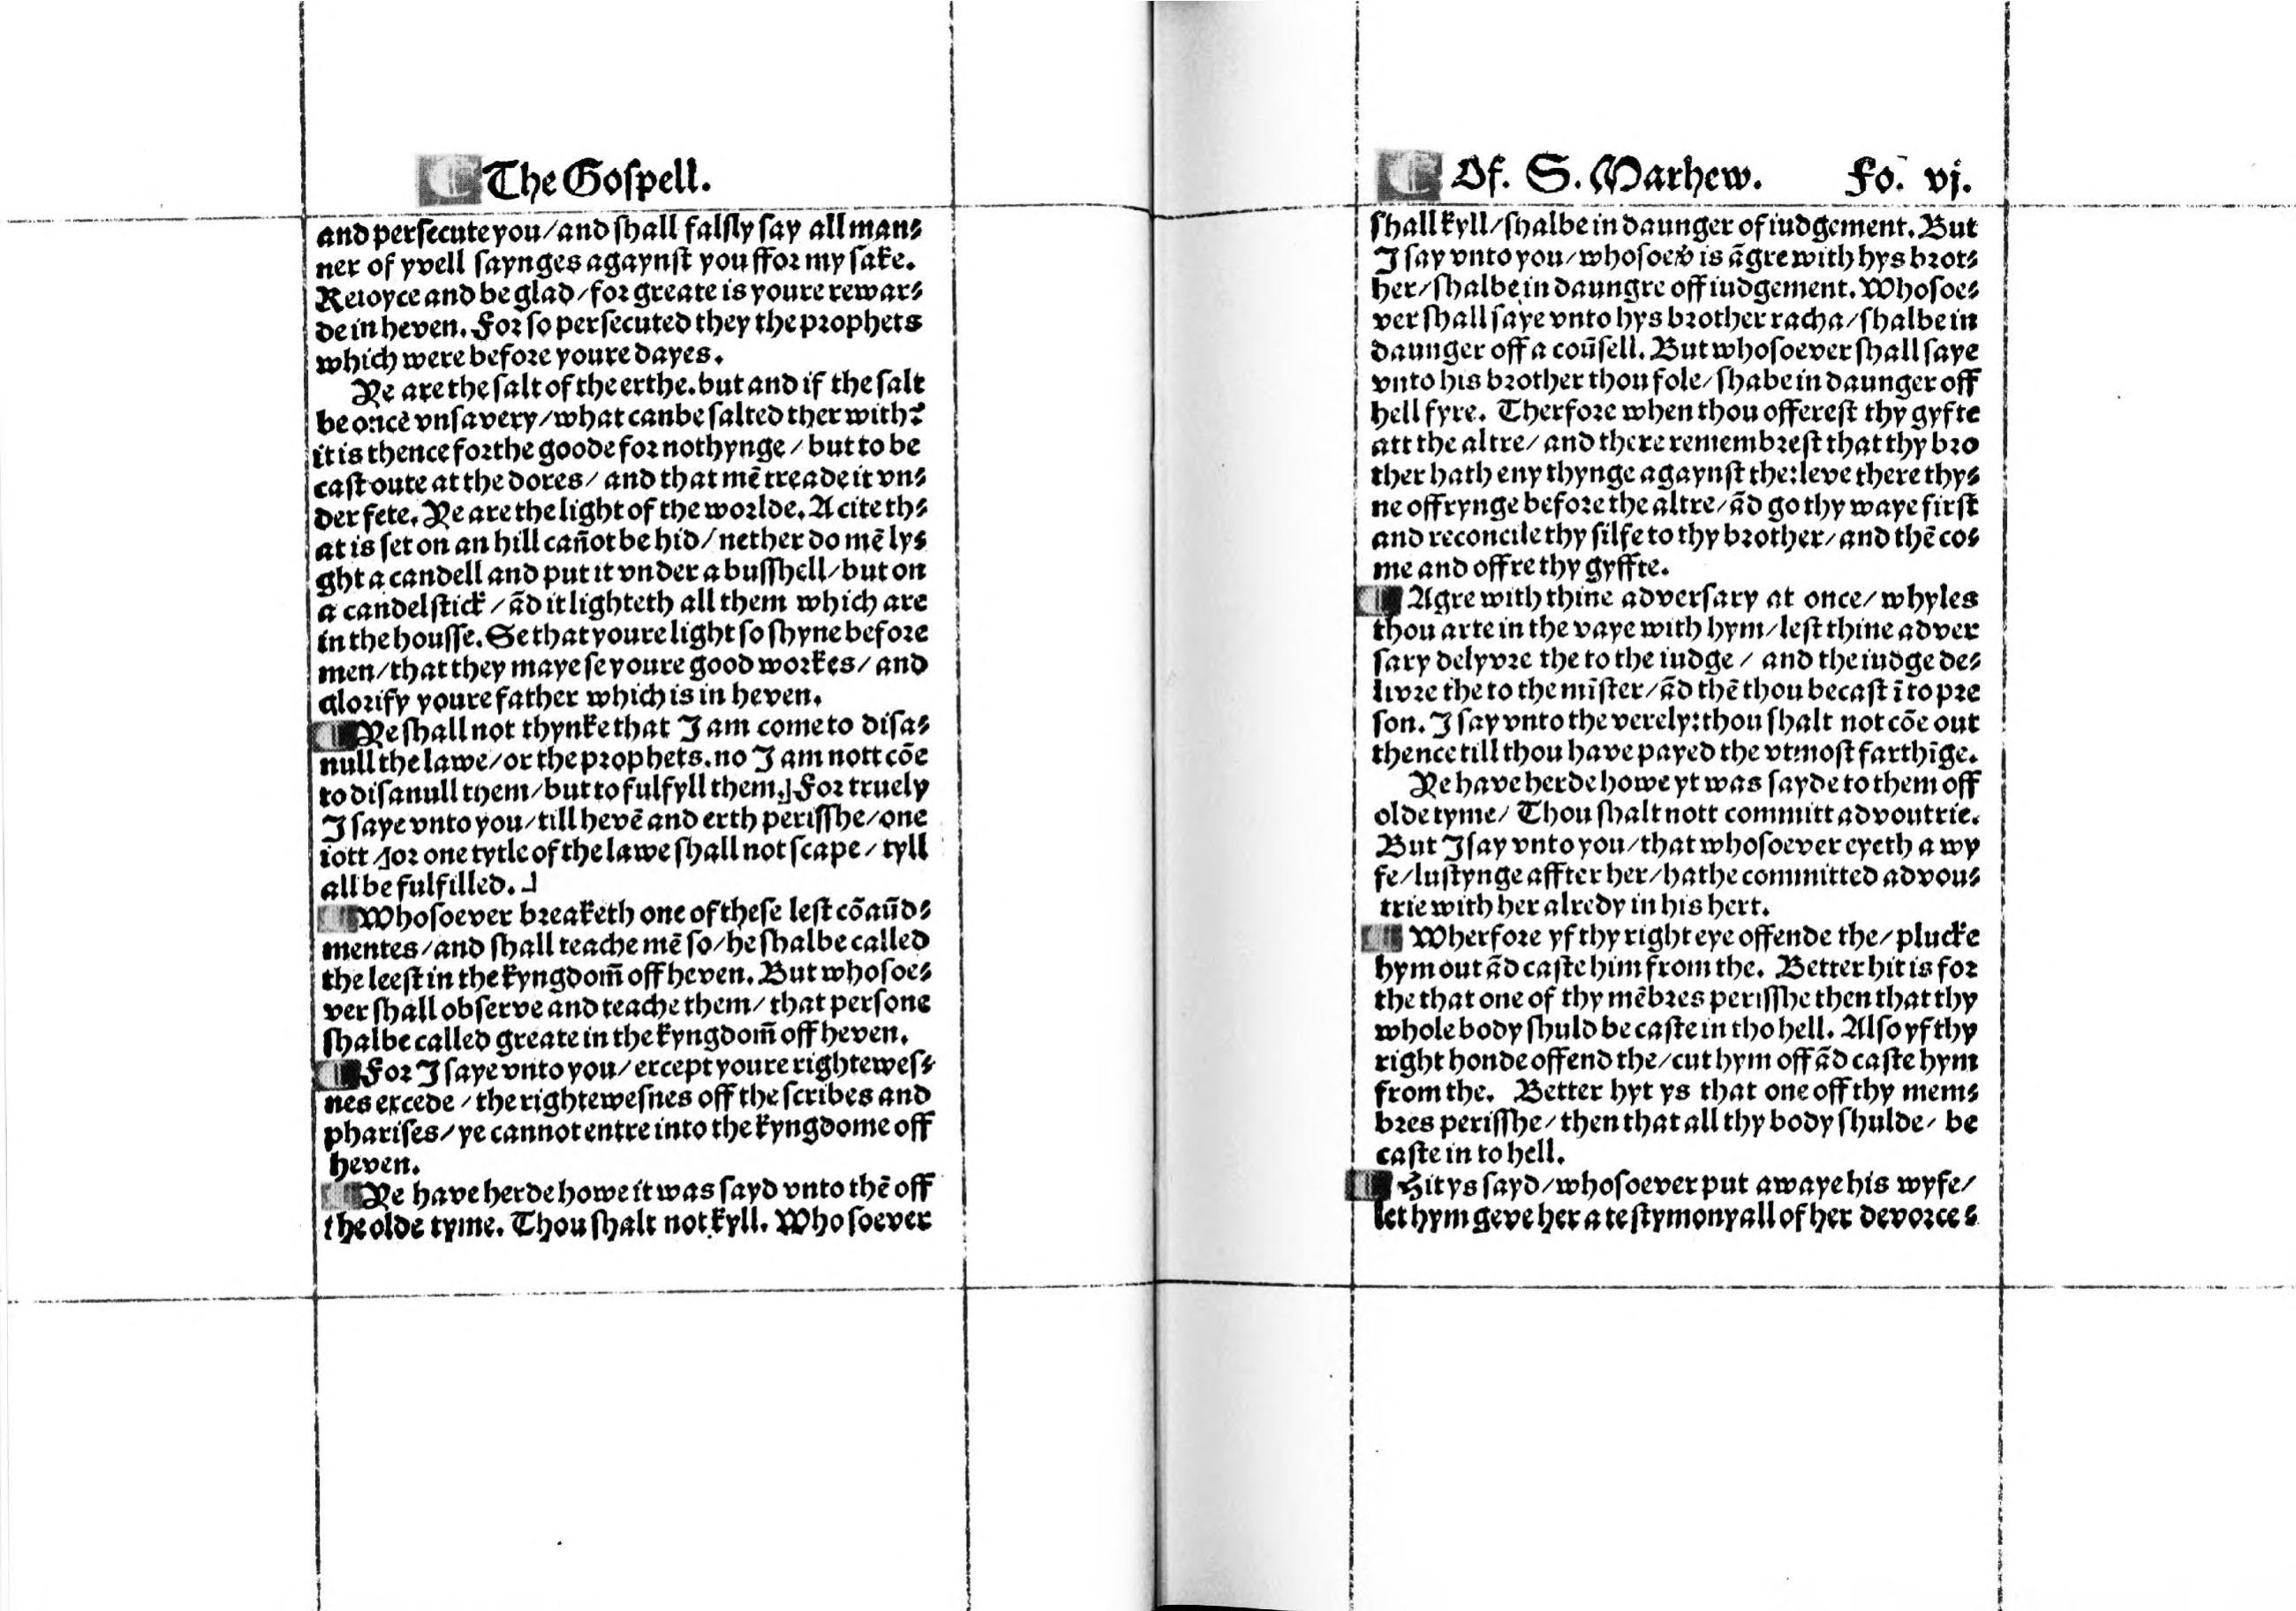 The Gospell.
and persecute you/and shall falsly say all man⸗
ner of yvell saynges agaynst you ffor my sake.
Reioyce and be glad/for greate is youre rewar⸗
de in heven. For so persecuted they the prophets
which were before youre dayes.
Ye are the salt of the erthe.but and if the salt
be once vnsavery/what can be salted ther with?
it is thence forthe goode for nothynge/but to be
cast oute at the dores/and that mē treade it vn⸗
der fete. Ye are the light of the worlde. A cite th⸗
at is set on an hill cañot be hid/nether do mē lys
ght a candell and put it vnder a busshell/but on
a candelstick/ād it lighteth all them which are
in the housse. Se that youre light so shyne before
men/that they maye se youre good workes/and
glorify youre father which is in heven.
Ye shall not thynke that I am come to disa⸗
null the lawe/or the prophets.no I am nott cōe
to disanull them/but to fulfyll them.⌋ For truely
I saye vnto you/till hevē and erth perisshe/one
iott /⌋or one tytle of the lawe shall not scape/tyll
all be fulfilled.⌋
Whosoever breaketh one of these lest cōaūd⸗
mentes/and shall teache mē so/he shalbe called
the leest in the kyngdom̄ off heven. But whosoe⸗
ver shall observe and teache them/that persone
shalbe called greate in the kyngdom̄ off heven.
For I saye vnto you/except youre rightewes⸗
nes excede/the rightewesnes off the scribes and
pharises/ye cannot entre into the kyngdome off
heven.
Ye have herde howe it was sayd vnto thē off
the olde tyme. Thou shalt not kyll. Whosoever
Of. S. Marhew. Fo. vj.
shall kyll/shalbe in daunger of iudgement. But
I say vnto you/whosoev̄ is āgre with hys brot⸗
her/shalbe in daungre off iudgement. Whosoe⸗
ver shall saye vnto hys brother racha/shalbe in
daunger off a coūsell. But whosoever shall saye
vnto his brother thou fole/shabe in daunger off
hell fyre. Therfore when thou offerest thy gyfte
att the altre/and there remembrest that thy bro
ther hath eny thynge agaynst the:leve there thy⸗
ne offrynge before the altre/ād go thy waye first
and reconcile thy silfe to thy brother/and thē co⸗
me and offre thy gyffte.
Agre with thine adversary at once/whyles
thou arte in the vaye with hym/lest thine adver
sary delyvre the to the iudge/and the iudge de⸗
livre the to the mīster/ād thē thou be cast ī to pre
son. I say vnto the verely:thou shalt not cōe out
thence till thou have payed the vtmost farthīge.
Ye have herde howe yt was sayde to them off
olde tyme/Thou shalt nott committ advoutrie.
But I say vnto you/that whosoever eyeth a wy
fe/lustynge affter her/hathe committed advou⸗
trie with her alredy in his hert.
Wherfore yf thy right eye offende the/plucke
hym out ād caste him from the. Better hit is for
the that one of thy mēbres perisshe then that thy
whole body shuld be caste in tho hell. Also yf thy
right honde offend the/cut hym off ād caste hym
from the. Better hyt ys that one off thy mem⸗
bres perisshe/then that all thy body shulde/be
caste in to hell.
Hit ys sayd/whosoever put awaye his wyfe/
let hym geve her a testymonyall of her devorce⸗